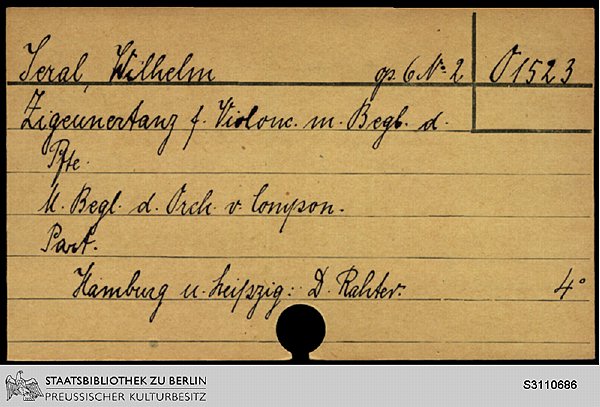 Jeral, Wilhelm op. 6 No 2 O 1523
Zigeunertanz f. Violonc. m. Begl. d.
Pfte.
M. Begl. d. Orch. v. Compon.
Part.
Hamburg u. Leipzig: D. Rahter. 4°
STAATSBIBLIOTHEK ZU BERLIN
PREUSSISCHER KULTURBESITZ
S3110686